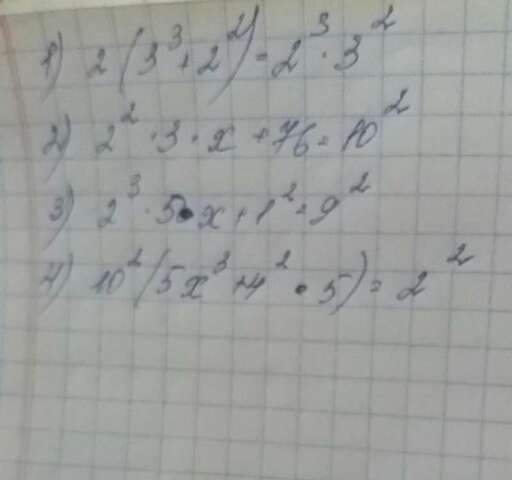 1) 2 (3³ + 2²) = 2³ · 3²
2) 2² · 3 · x + 76 = 10²
3) 2³ · 5 · x + 1² = 9²
4) 10² (5x³ + 4² · 5) = 2²